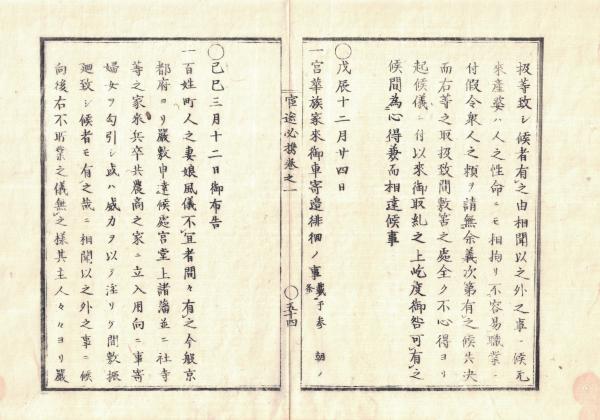 扱等致シ候者有之由相聞以之外之事ニ候元
來產婆ハ人之性命ニモ相拘リ不容易職業ニ
付假令衆人之頼ヲ請無余義次第有之候共決
而右等之取扱致間敷筈之處全ク不心得ヨリ
起候儀ニ付以來御取糺之上屹度御咎可有之
候間為心得兼而相達候事
○戊辰十二月廿四日
一宮華族家來御車寄邊徘徊ノ事載于参朝ノ条
宦途必携卷之一
○五十四
○己巳三月十二日御布告
一百姓町人之妻娘風儀不宜者間々有之今般京
都府ヨリ嚴敷申達候處宮堂上諸藩並ニ社寺
等之家來兵卒共農商之家ニ立入用向ニ事寄
婦女ヲ勾引シ或ハ威力ヲ以テ淫リケ間敷振
廻致シ候者モ有之哉ニ相聞以之外之事ニ候
向後右不取業之儀無之様其主人々々ヨリ嚴